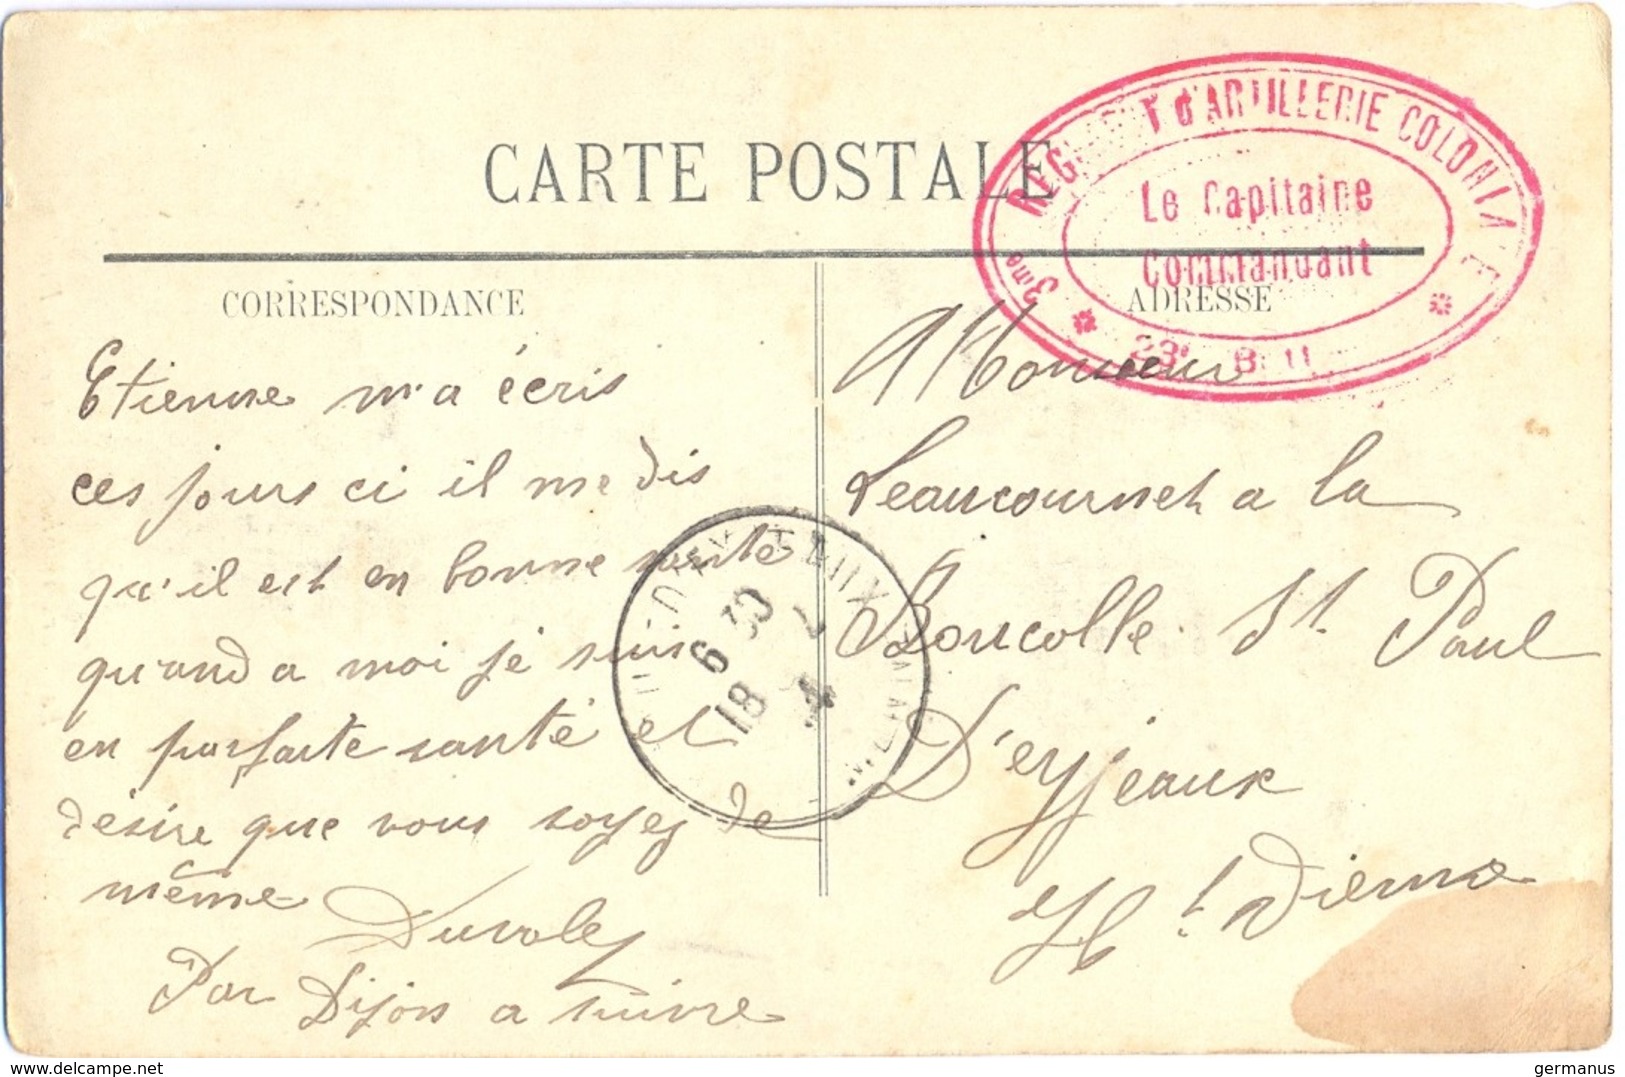 CARTE POSTALE
3me REGIMENT D'ARTILLERIE COLONIALE
Le Capitaine
Commandant
CORRESPONDANCE
Etienne m'a écris
ces jours ci il me dis
qu'il est en bonne sante
quand a moi je suis
en parfaite santé et
désire que vous soyez de
même
Par Dijon a suivre
ADRESSE
A Monsieur
Leaucournet a la
Boucolle St Paul
D'eyjeaux
Ht Vienne
6 30
18 4
www.delcampe.net
germanus